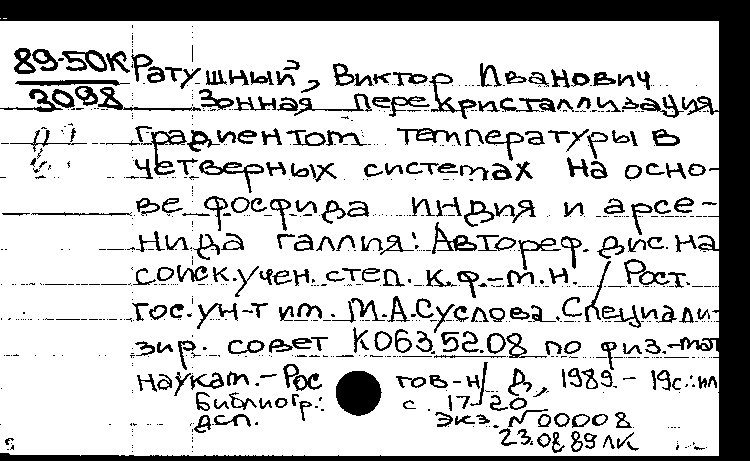 89-50К Ратушный, Виктор Иванович
3098 Зонная перекристаллизация
градиентом температуры в
четверных системах на осно-
ве фосфида индия и арсе-
нида галлия: Автореф. дис. на
соиск. учен. степ. к.ф.-м.н. / Рост.
гос. ун-т им. М.А.Суслова. Специали-
зир. совет К063.52.08 по физ.-мат
наукам.- Ростов-н/Д, 1989.- 19с.: ил
Библиогр.: с. 17-20
дсп. Экз. N 00008
23.08.89 ЛК